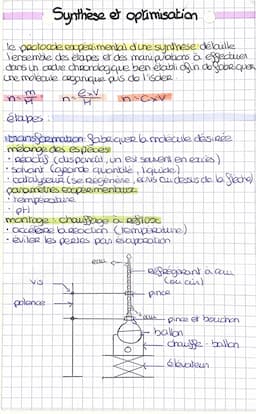 Synthèse et optimisation
le protocole expérimental d'une synthèse détaille
l'ensemble des étapes et des manipulations à effectuer
dans un ordre chronologique bien établi afin de fabriquer
une molécule organique puis de l'isoler.
n = m/M n = ρ×V/M n = C×V
étapes :
transformation fabriquer la molécule désirée
mélange des espèces
• réactif (disparaît, un est souvent en excès)
• solvant (grande quantité, liquide)
• catalyseur (se régénère, au dessus de la flèche)
paramètres expérimentaux
• température
• pH
montage : chauffage à reflux
• accélère la réaction (température)
• éviter les pertes par évaporation
eau
réfrigérant à eau
(ou air)
vis
pince
potence
eau
pince et bouchon
ballon
chauffe-ballon
élévateur